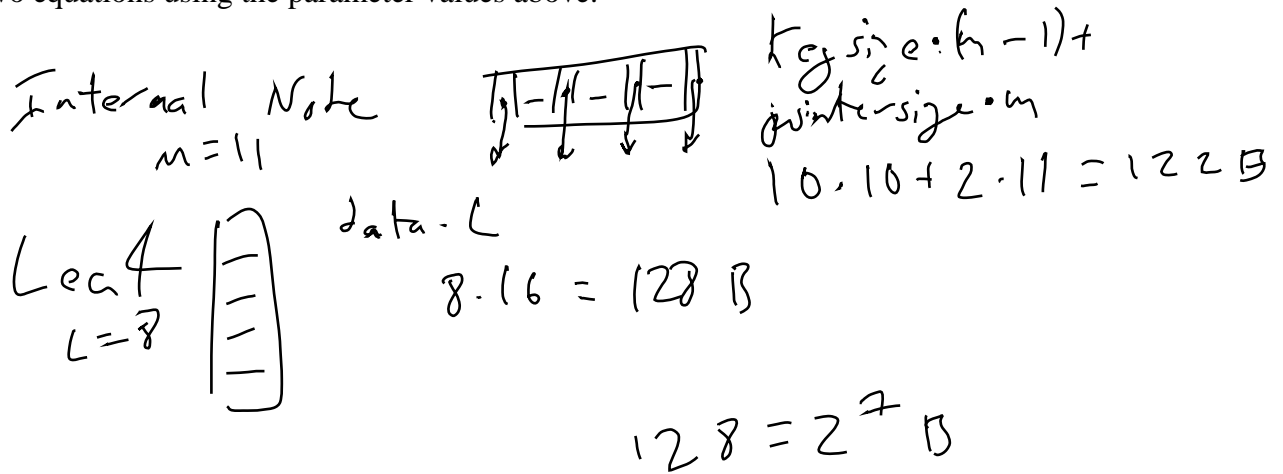 wo equations using the parameter values above.
Internal Note
m = 11
key size · (m - 1) +
pointersize · m
10 · 10 + 2 · 11 = 122 B
Leaf
L = 8
data · L
8 · 16 = 128 B
128 = 2^7 B